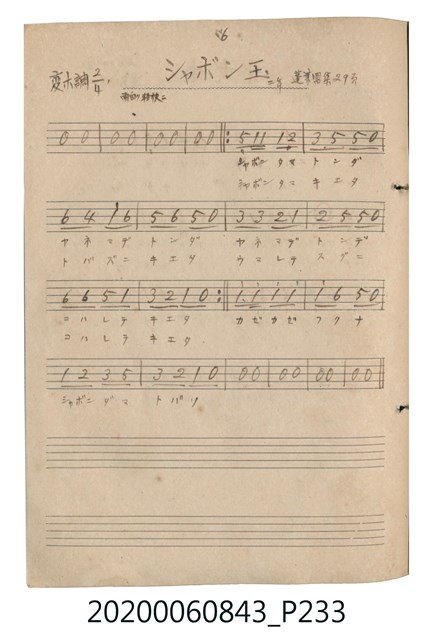 56
シャボン玉
変ホ調 2/4
0 0 0 0 0 0 0 0 5 1 1 1 2 3 5 5 0
シャボンタマ トンダ
シャボンタマ キエタ
6 4 1 6 5 6 5 0 3 3 2 1 2 5 5 0
ヤネマデ トンダ ヤネマデ トンデ
トバズニ キエタ ウマレテ スグニ
6 6 5 1 3 2 1 0 1 1 1 1 1 6 5 0
コハレテ キエタ カゼカゼ フクナ
コハレテ キエタ
1 2 3 5 3 2 1 0 0 0 0 0 0 0 0 0
シャボンダマ トバソ
20200060843_P233